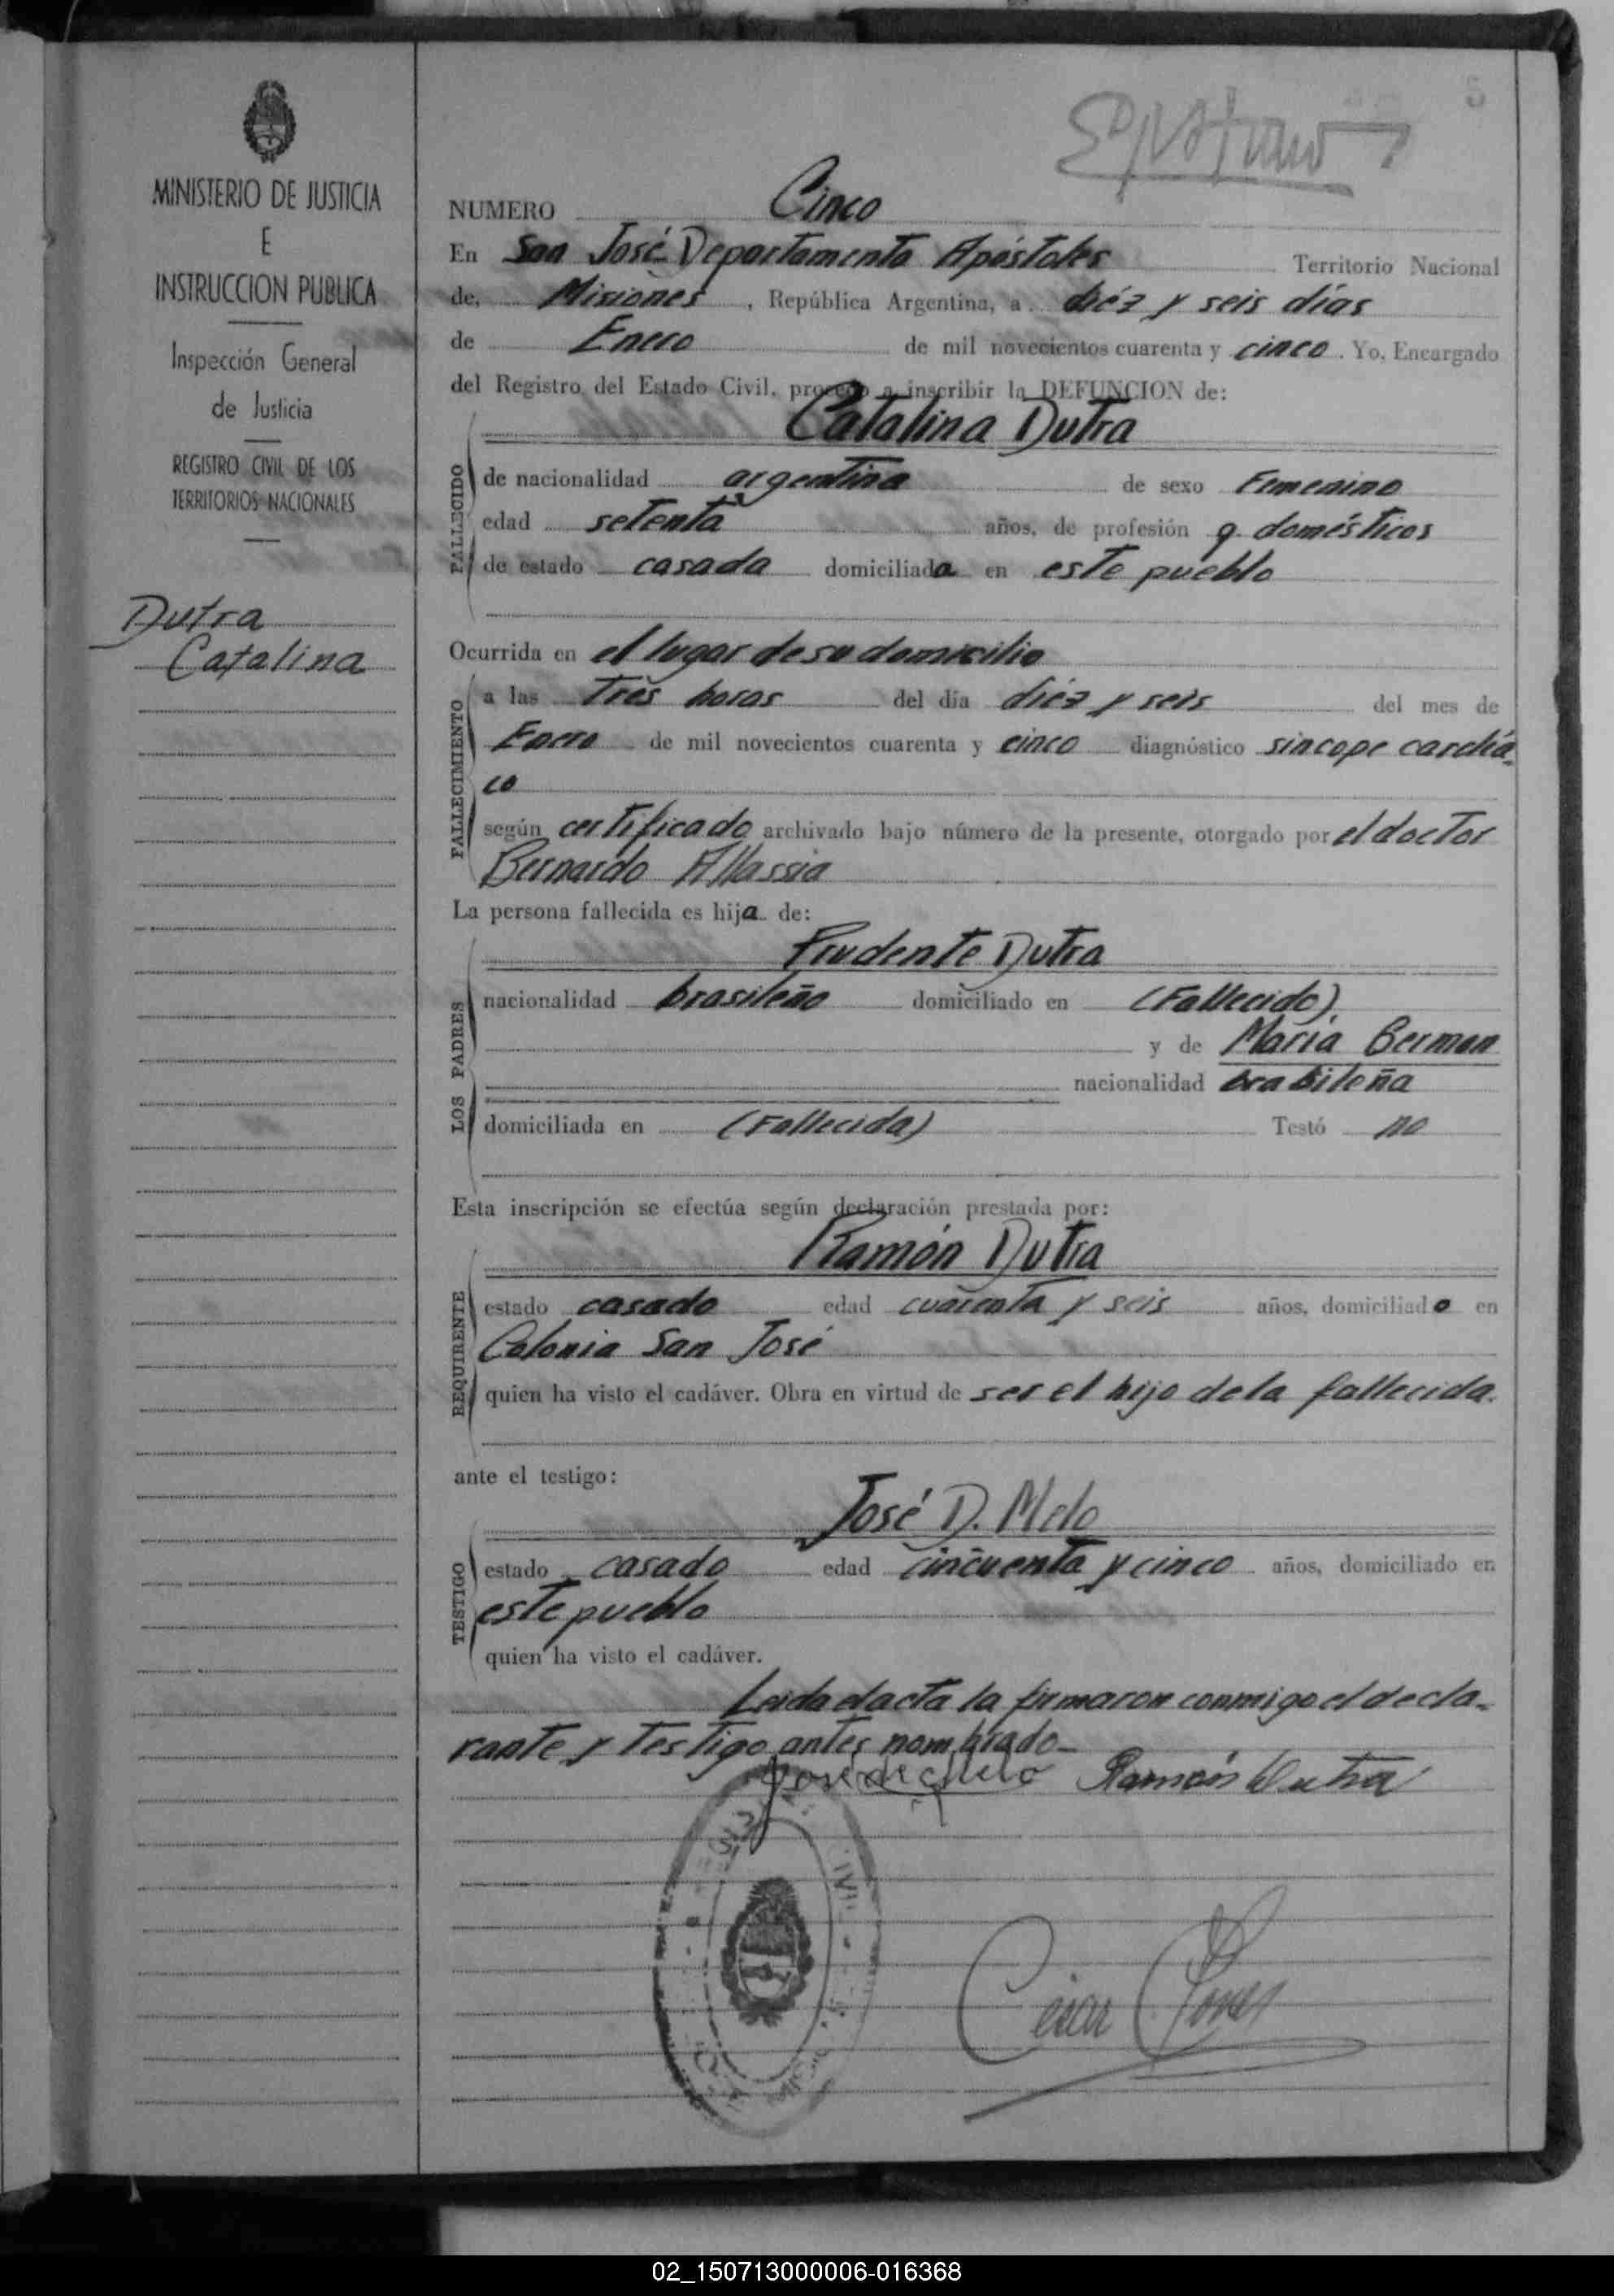 5
MINISTERIO DE JUSTICIA
E
INSTRUCCION PUBLICA
Inspección General
de Justicia
REGISTRO CIVIL DE LOS
TERRITORIOS NACIONALES
Dutra
Catalina
NUMERO Cinco
En San José Departamento Apóstoles Territorio Nacional
de, Misiones, República Argentina, a diéz y seis días
de Enero de mil novecientos cuarenta y cinco. Yo, Encargado
del Registro del Estado Civil, procedo a inscribir la DEFUNCION de:
Catalina Dutra
FALLECIDO
de nacionalidad argentina de sexo Femenino
edad setenta años, de profesión q. domésticos
de estado casada domiciliada en este pueblo
Ocurrida en el lugar de su domicilio
FALLECIMIENTO
a las Tres horas del día diéz y seis del mes de
Enero de mil novecientos cuarenta y cinco diagnóstico sincope cardía-
co
según certificado archivado bajo número de la presente, otorgado por el doctor
Bernardo Allassia
La persona fallecida es hija de:
LOS PADRES
Prudente Dutra
nacionalidad brasileño domiciliado en (Fallecido).
y de María Berman
nacionalidad brasileña
domiciliada en (Fallecida) Testó no
Esta inscripción se efectúa según declaración prestada por:
REQUIRENTE
Ramón Dutra
estado casado edad cuarenta y seis años, domiciliado en
Colonia San José
quien ha visto el cadáver. Obra en virtud de ser el hijo de la fallecida.
ante el testigo:
TESTIGO
José D. Melo
estado casado edad cincuenta y cinco años, domiciliado en
este pueblo
quien ha visto el cadáver.
Leída el acta la firmaron conmigo el decla-
rante y Testigo antes nombrado-
Ramón Dutra
02_150713000006-016368